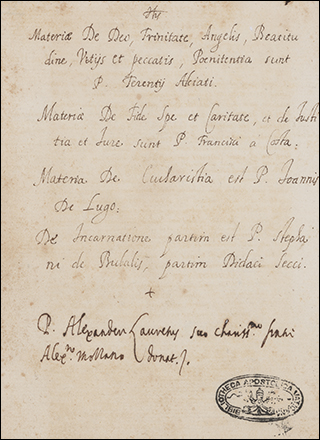 Ihs
Materiæ De Deo, Trinitate, Angelis, Beatitu
dine, Vitijs et peccatis, Pœnitentia sunt
P. Terentij Alciati.
Materiæ De Fide Spe et Caritate, et de Justi
tia et Jure sunt P. Francisci a Costa:
Materia De Eucharistia est P. Joannis
De Lugo:
De Incarnatione partim est P. Stepha
ni de Bubalis, partim Didaci Secci.
+
P. Alexander Lauretus suo chariss.mo fratri
Alex.ro donat.
BIBLIOTHECA APOSTOLICA VATICANA